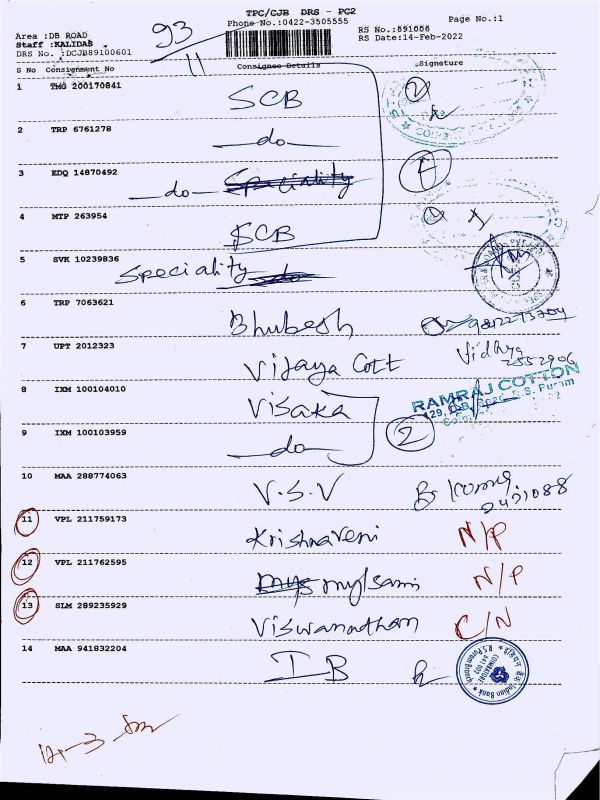 TPC/CJB DRS - PC2
Phone No.:0422-3505555
Page No.:1
Area :DB ROAD
Staff :KALIDAS
DRS No. :DCJB89100601
93
11
RS No.:891006
RS Date:14-Feb-2022
S No Consignment No Consignee Details Signature
1 TMG 200170841 SCB
2 TRP 6761278 —do—
3 EDQ 14870492 —do— Speciality
4 MTP 263954 SCB
5 SVK 10239836 Speciality do
6 TRP 7063621 Bhubesh
7 UPT 2012323 Vijaya Cott Vidhya 2552906
8 IXM 100104010 Visaka
RAMRAJ COTTON
9 IXM 100103959 —do— 2
10 MAA 288774063 V.S.V
11 VPL 211759173 Krishnaveni N/P
12 VPL 211762595 mylsami N/P
13 SLM 289235929 Viswanathan C/N
14 MAA 941832204 IB
Indian Bank